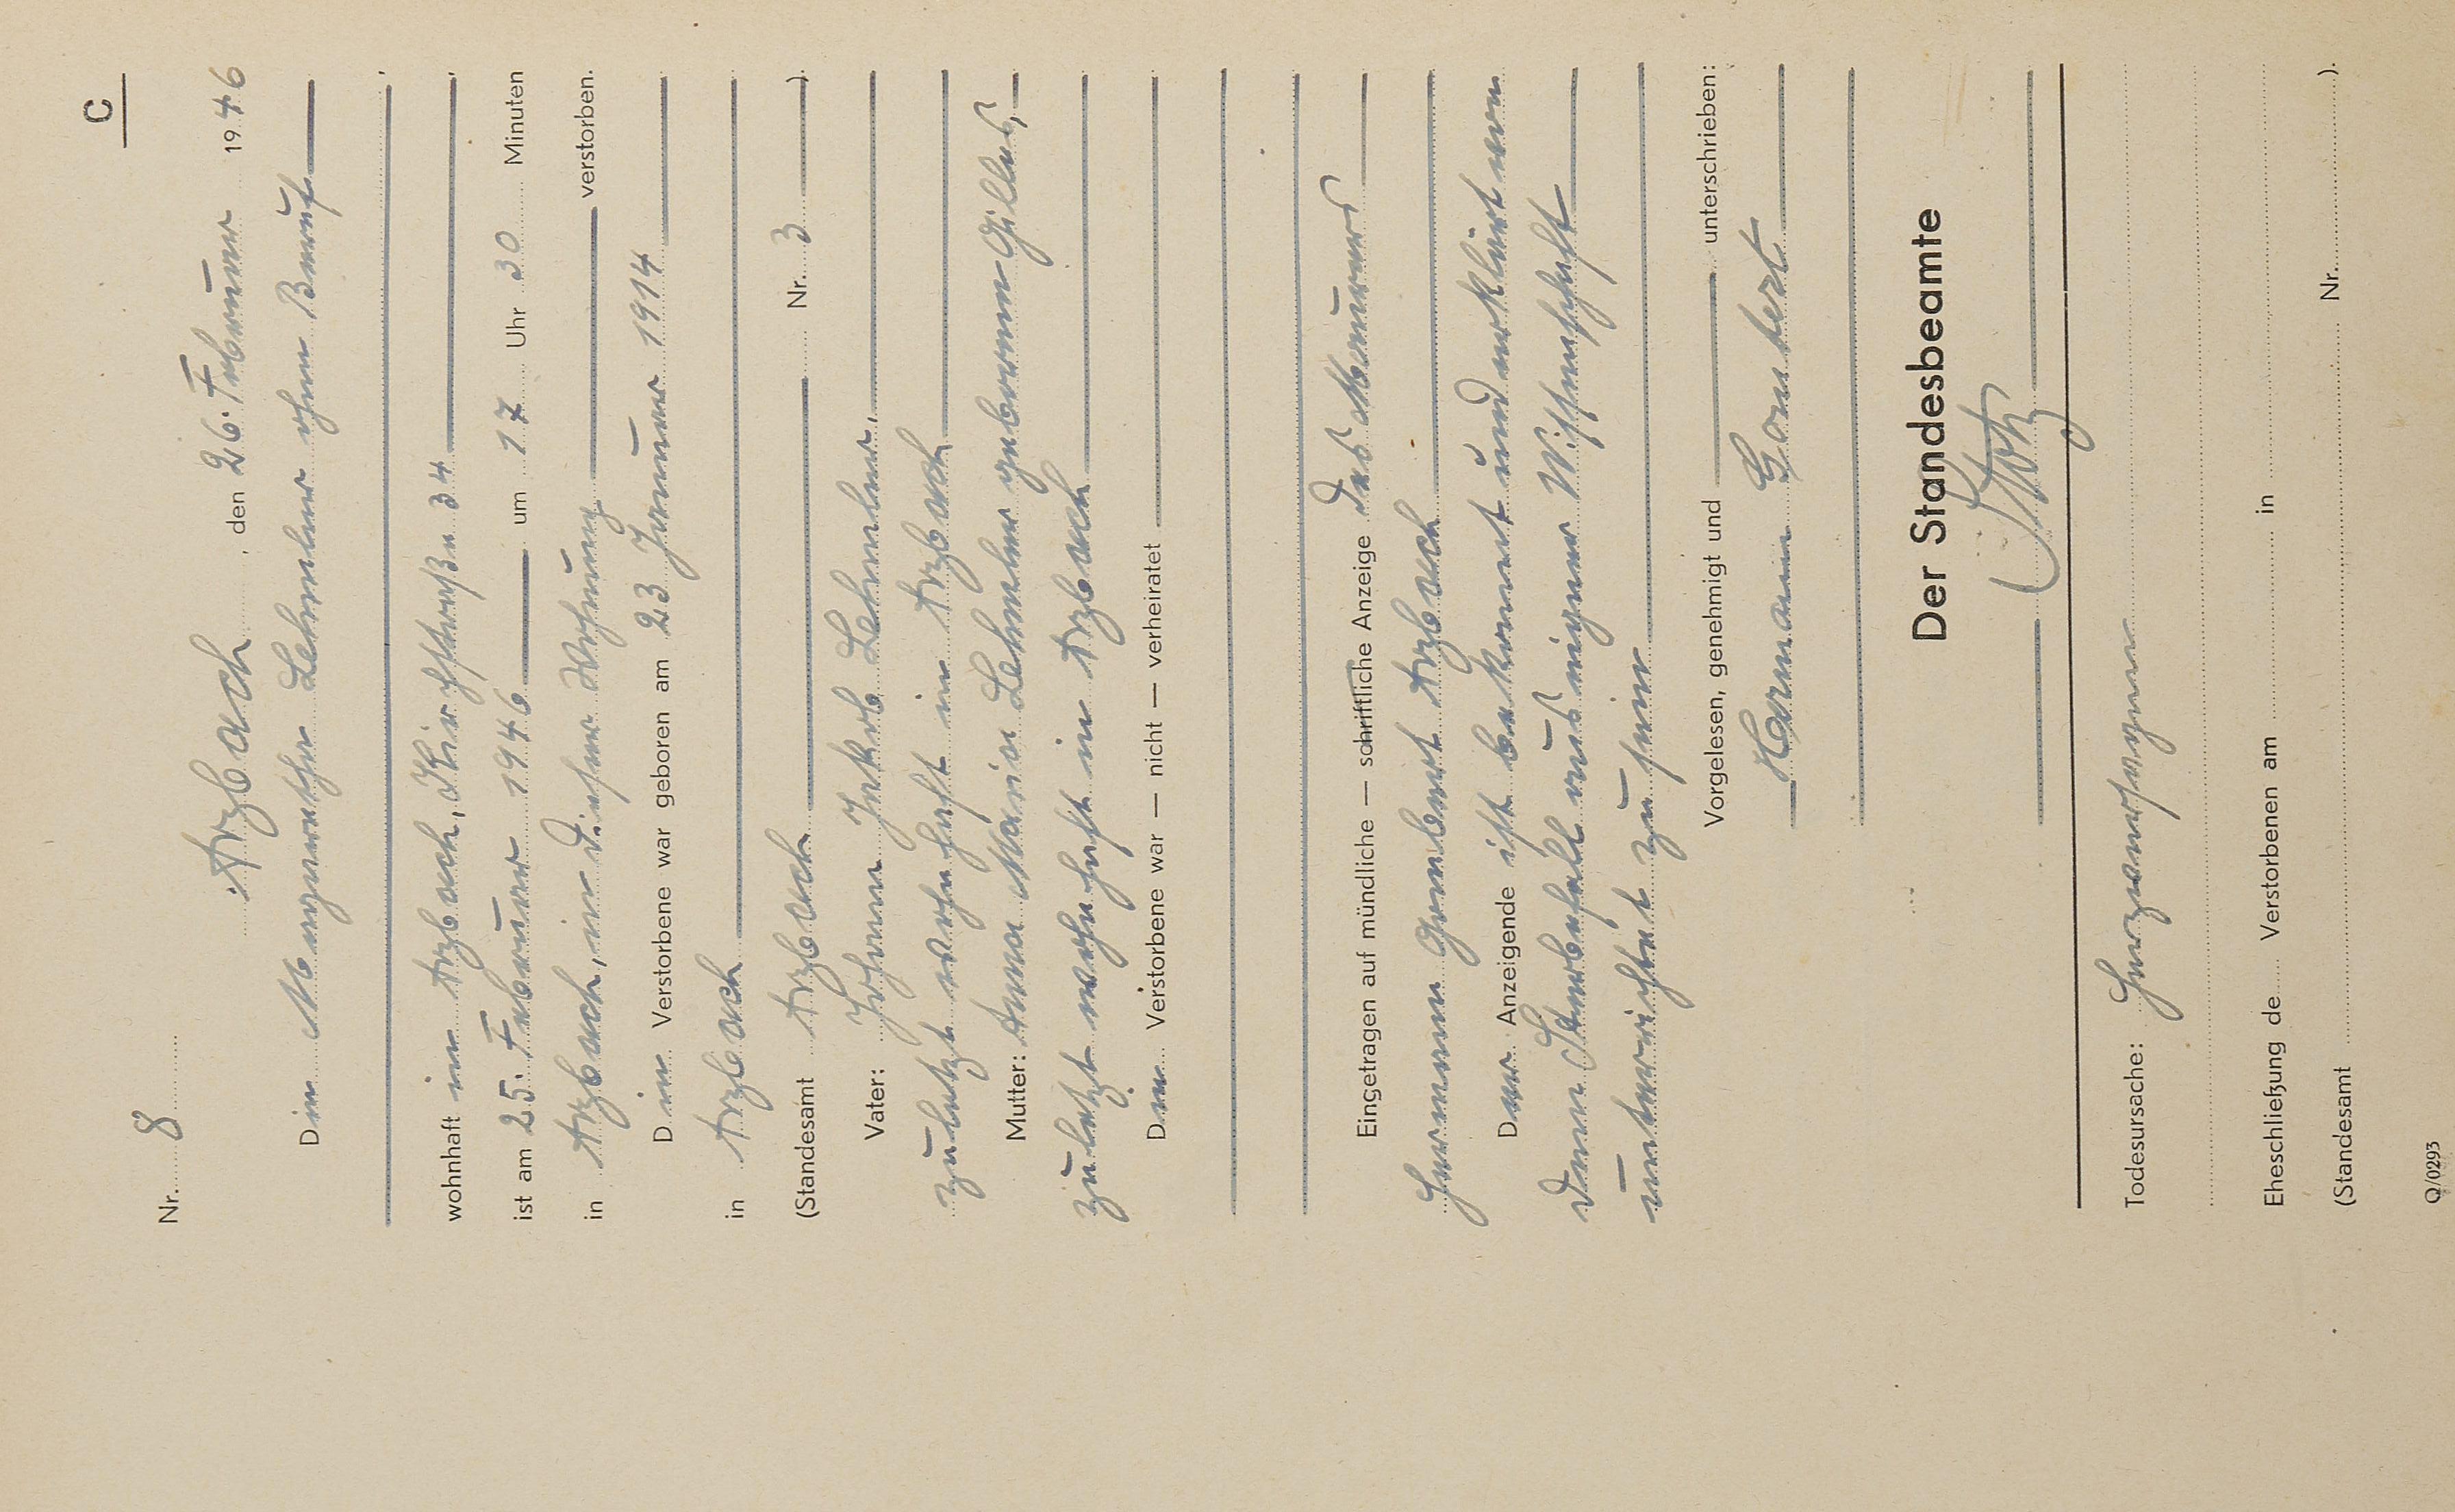 C
Nr. 8
Arzbach, den 26. Februar 1946
Die Margarethe Lehmler ohne Beruf
wohnhaft in Arzbach, Kirchstraße 34
ist am 25. Februar 1946 um 17 Uhr 30 Minuten
in Arzbach, in dieser Wohnung verstorben.
Die Verstorbene war geboren am 23 Januar 1914
in Arzbach
(Standesamt Arzbach Nr. 3 ).
Vater: Johann Jakob Lehmler,
zuletzt wohnhaft in Arzbach
Mutter: Anna Maria Lehmler geborene Gilles,
zuletzt wohnhaft in Arzbach
Die Verstorbene war — nicht — verheiratet
Eingetragen auf mündliche — schriftliche Anzeige des Maurers
Hermann Gombert Arzbach
Der Anzeigende ist bekannt und erklärt von
dem Sterbefall aus eigener Wissenschaft
unterrichtet zu sein
Vorgelesen, genehmigt und unterschrieben:
Hermann Gombert
Der Standesbeamte
Todesursache: Herzversagen
Eheschließung de Verstorbenen am in
(Standesamt Nr. ).
Q/0293